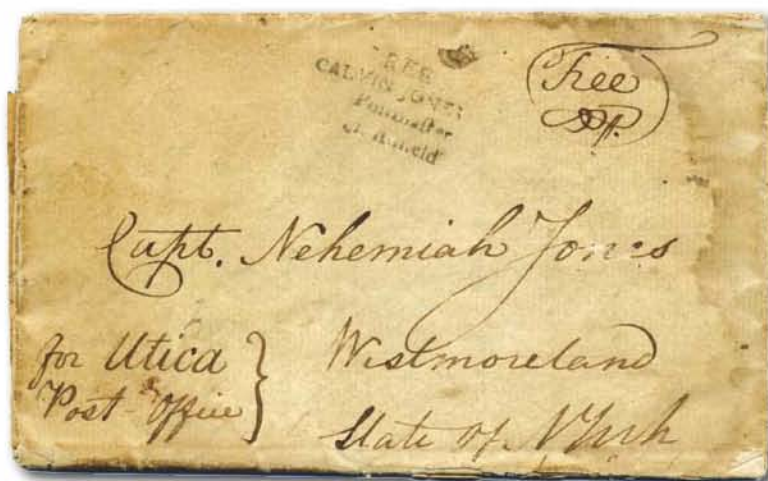 FREE
CALVIN JONES
Postmaster
Free
Capt. Nehemiah Jones
for Utica
Post-Office
Westmoreland
State of N York